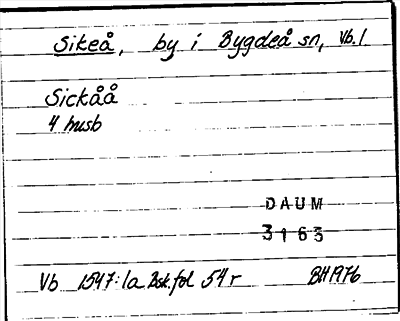 Sikeå, by i Bygdeå sn, Vb.l
Sickåå
4 husb
DAUM
3163
Vb 1547:1a Bsk.fol 54r BH 1976